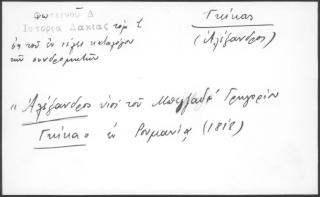 Φωτεινού Δ
Ιστορία Δακίας τομ
εκ του εν τέλει καταλόγου
των συνδρομητών
Γκίκας
(Αλέξανδρος)
"Αλέξανδρος υιός του Μπεϊζαδέ Γρηγορίου
Γκίκα εν Ρουμανία (1818)